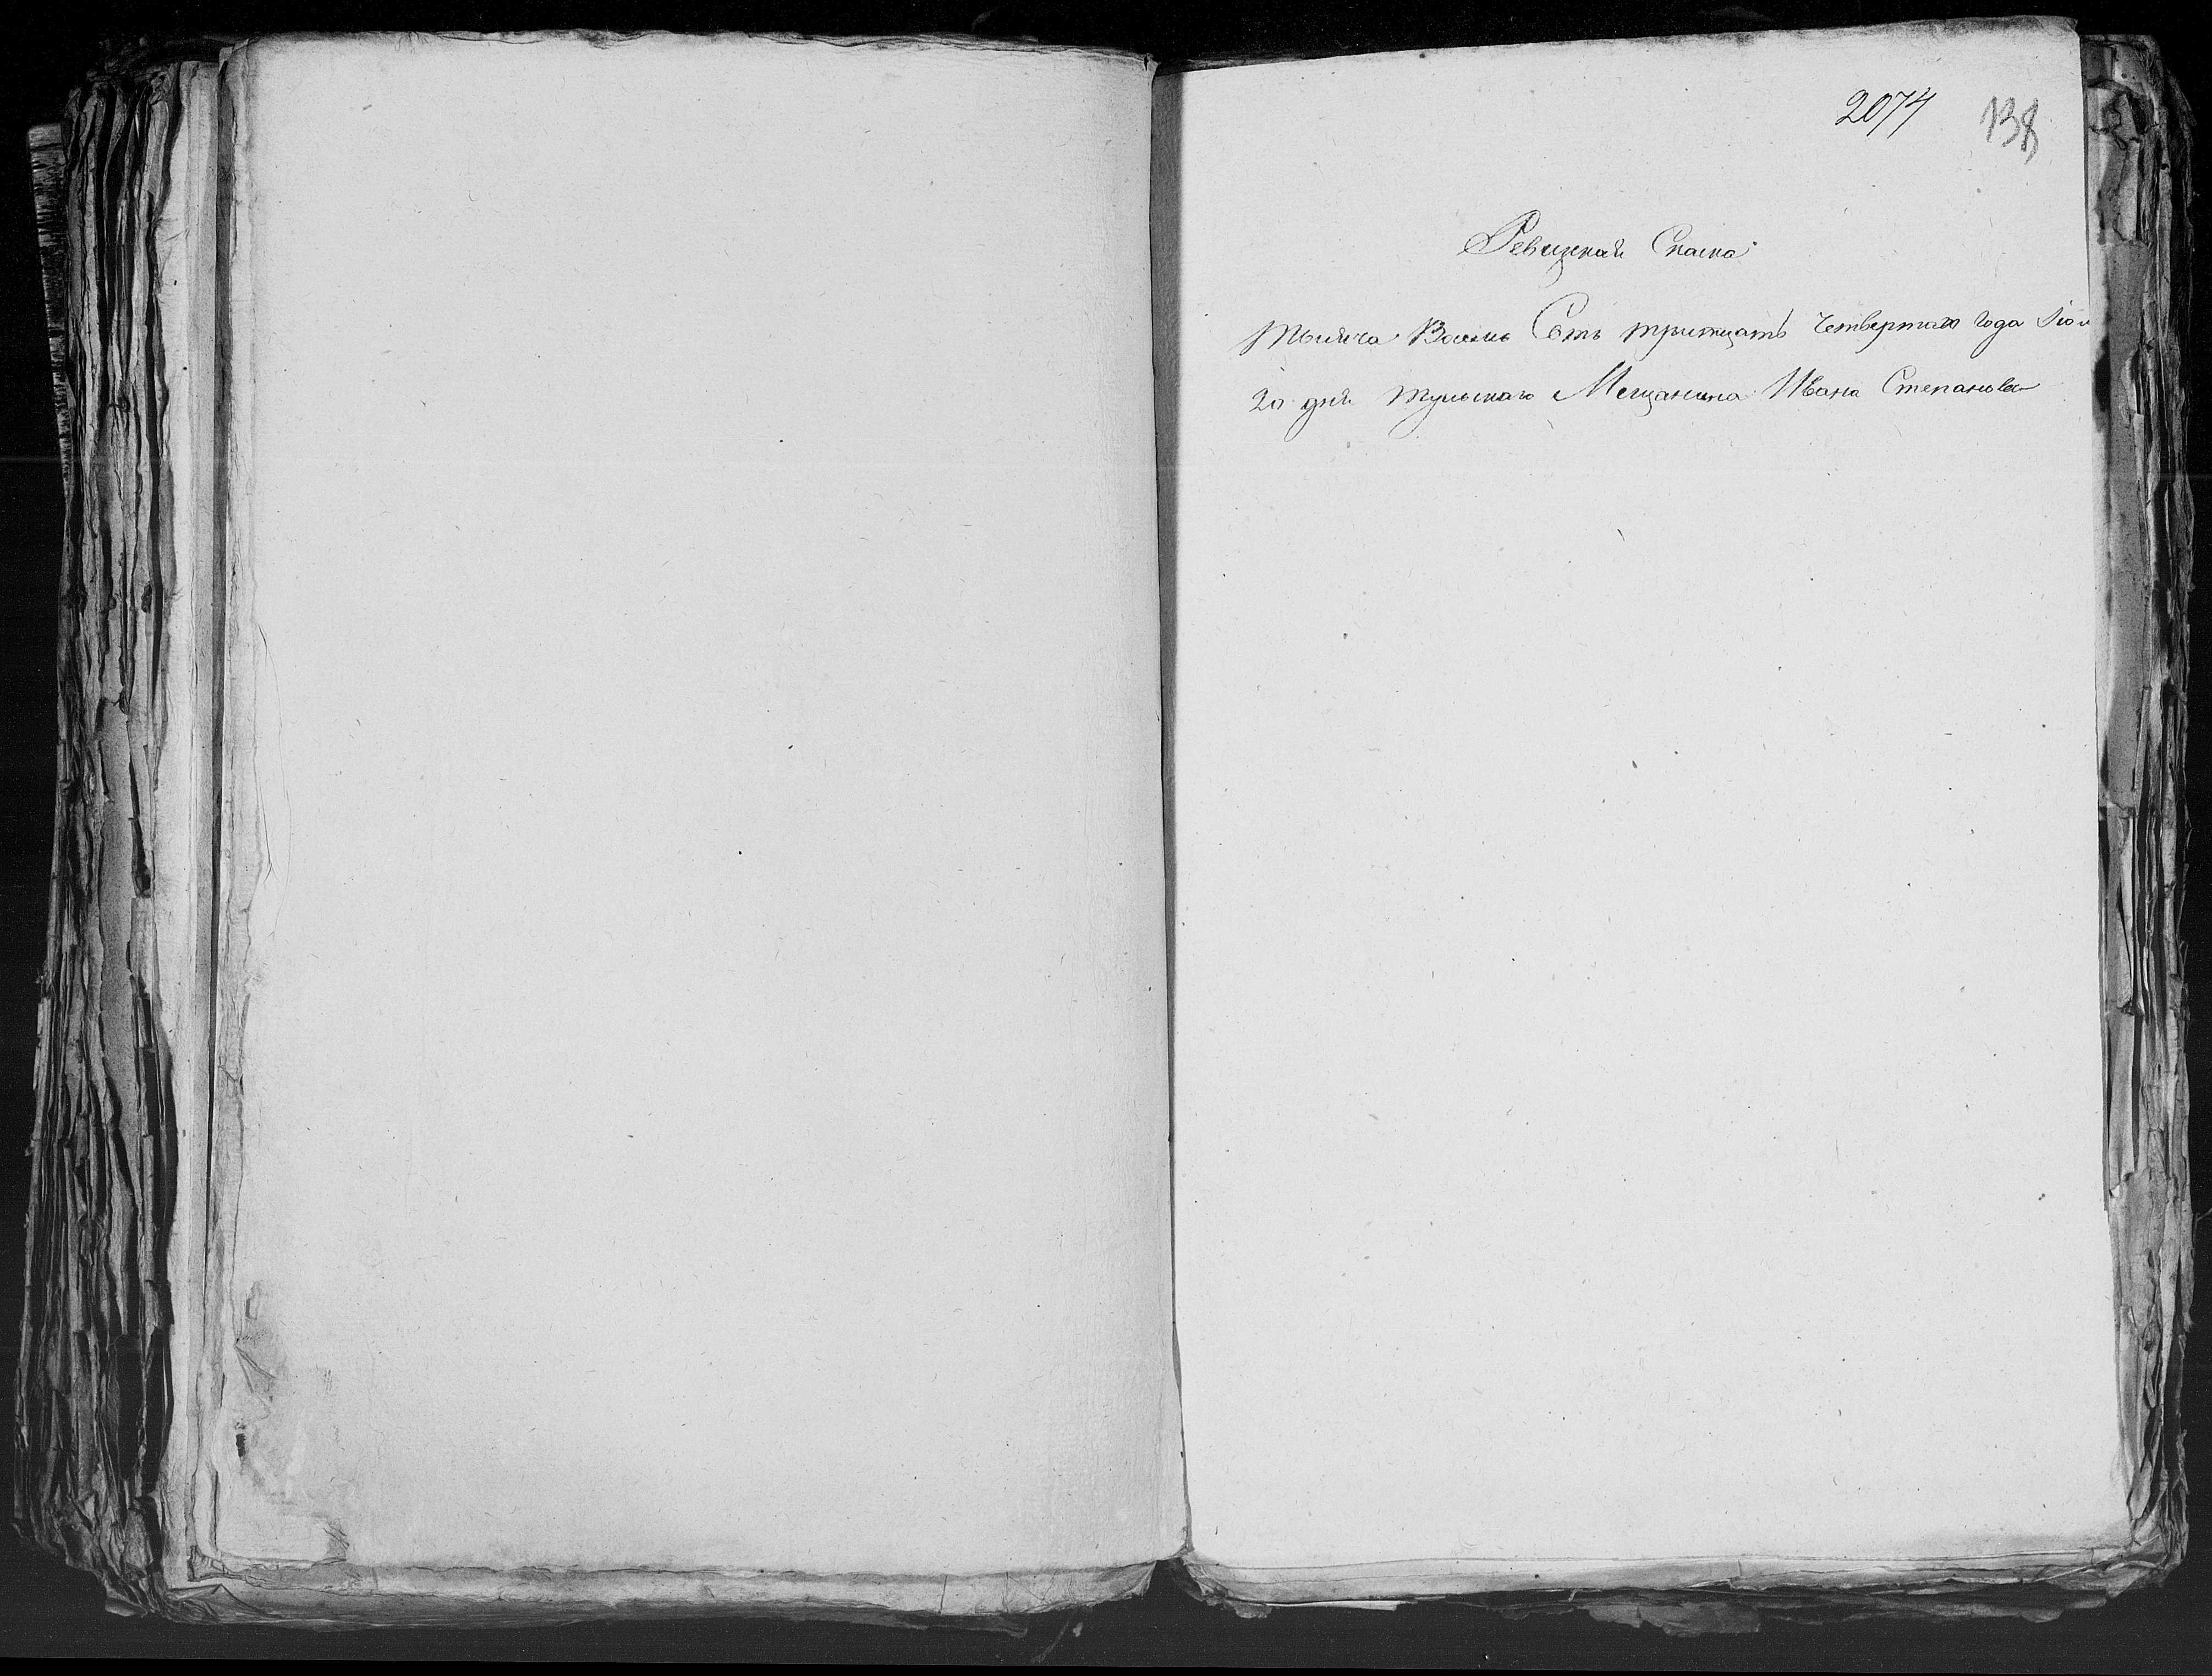 2074 138
Ревизкай Скаска
Тысяча Восемь Сотъ тритцатъ четвертаго года
20 дня тульскаго Мещанина Ивана Степанова